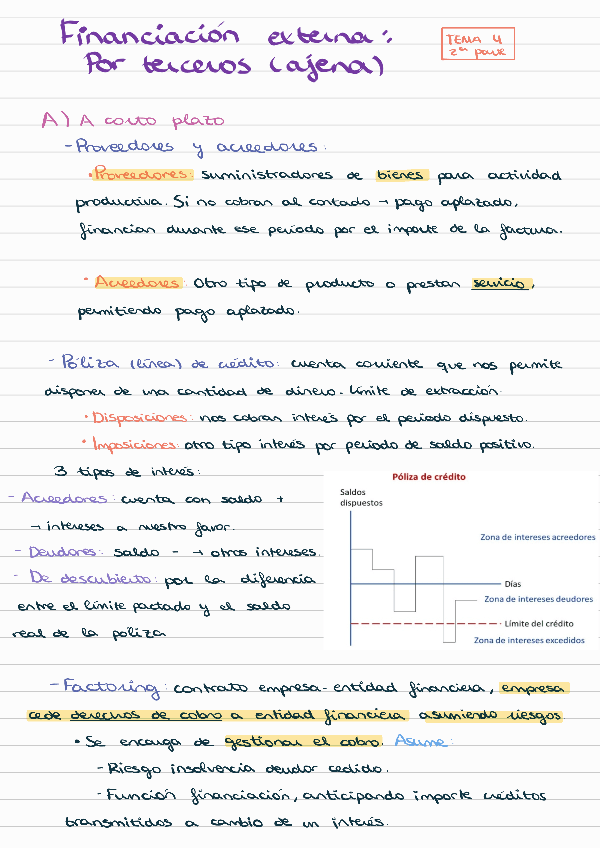 Financiación externa:
Por terceros (ajena)
TEMA 4
2ª parte
A) A corto plazo
- Proveedores y acreedores:
• Proveedores: suministradores de bienes para actividad
productiva. Si no cobran al contado → pago aplazado,
financian durante ese periodo por el importe de la factura.
• Acreedores: Otro tipo de producto o prestan servicio,
permitiendo pago aplazado.
- Póliza (línea) de crédito: cuenta corriente que nos permite
disponer de una cantidad de dinero. Límite de extracción.
• Disposiciones: nos cobran interés por el periodo dispuesto.
• Imposiciones: otro tipo interés por periodo de saldo positivo.
3 tipos de interés:
- Acreedores: cuenta con saldo +
→ intereses a nuestro favor.
- Deudores: saldo - → otros intereses.
- De descubierto: por la diferencia
entre el límite pactado y el saldo
real de la poliza
Póliza de crédito
Saldos
dispuestos
Zona de intereses acreedores
Días
Zona de intereses deudores
Límite del crédito
Zona de intereses excedidos
- Factoring: contrato empresa-entidad financiera, empresa
cede derechos de cobro a entidad financiera asumiendo riesgos.
• Se encarga de gestionar el cobro. Asume:
- Riesgo insolvencia deudor cedido.
- Función financiación, anticipando importe créditos
transmitidos a cambio de un interés.